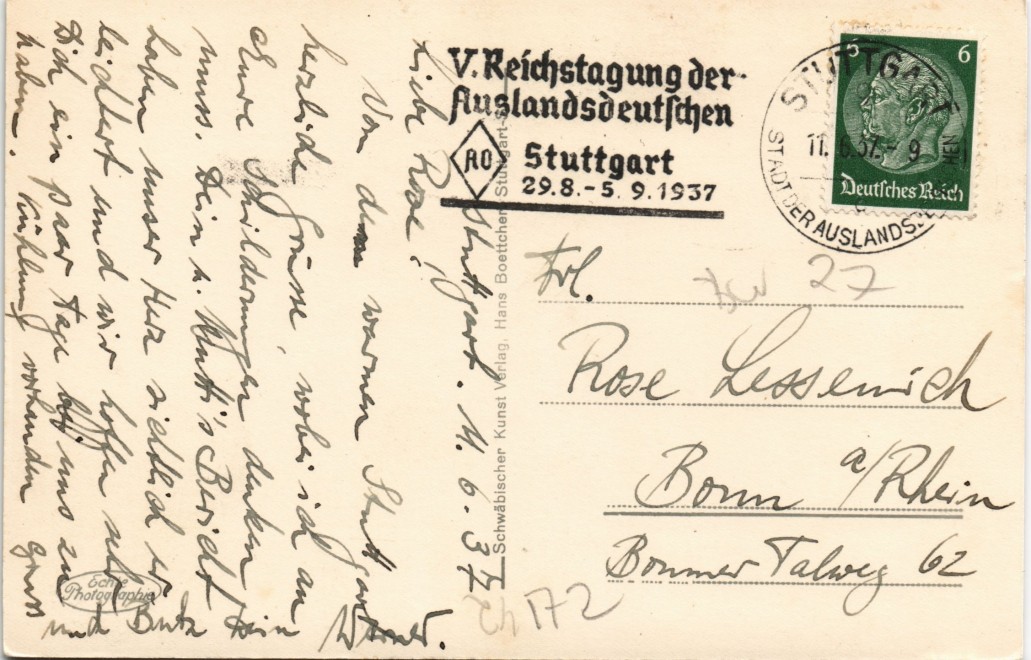 V. Reichstagung der
Auslandsdeutschen
AO Stuttgart
29.8.-5.9.1937
STUTTGART
11.6.37.- 9
STADT DER AUSLANDSD
5 6
Deutsches Reich
Stuttgart. 11. 6. 37
Liebe Rose!
Von dem warmen Stuttgart
herzliche Grüsse, wobei ich an
Eure Schilderungen denken
muss. Dein u. Mutti's Bericht
haben unser Herz sichtlich er
leichtert und wir hoffen sehr
Dich ein paar Tage bei uns zu
haben. Kühlung vorhanden
Gruss
und Dein Werner.
Schwäbischer Kunst Verlag, Hans Boettcher, Stuttgart-S
Echte
Photographie
Frl.
27
Rose Lessenich
Bonn a/Rhein
Bonner Talweg 62
172